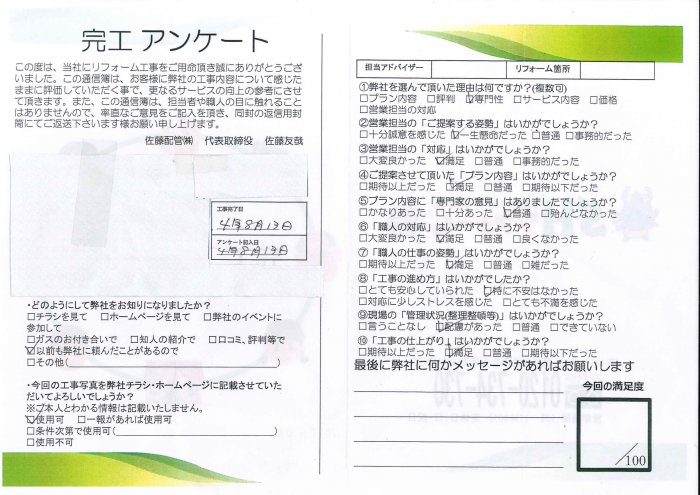 完工 アンケート
この度は、当社にリフォーム工事をご用命頂き誠にありがとうござ
いました。この通信簿は、お客様に弊社の工事内容について感じた
ままに評価していただく事で、更なるサービスの向上の参考にさせ
て頂きます。また、この通信簿は、担当者や職人の目に触れること
はありませんので、率直なご意見をご記入を頂き、同封の返信用封
筒にてご返送下さいます様お願い申し上げます。
佐藤配管㈱ 代表取締役 佐藤友哉
工事完了日
4年8月13日
アンケート記入日
4年8月13日
・どのようにして弊社をお知りになりましたか？
□チラシを見て □ホームページを見て □弊社のイベントに
参加して
□ガスのお付き合いで □知人の紹介で □口コミ、評判等で
☑以前も弊社に頼んだことがあるので
□その他( )
・今回の工事写真を弊社チラシ・ホームページに記載させていた
だいてよろしいでしょうか？
※ご本人とわかる情報は記載いたしません。
☑使用可 □一報があれば使用可
□条件次第で使用可( )
□使用不可
担当アドバイザー リフォーム箇所
①弊社を選んで頂いた理由は何ですか？(複数可)
□プラン内容 □評判 ☑専門性 □サービス内容 □価格
□営業担当の対応
②営業担当の「ご提案する姿勢」はいかがでしょうか？
□十分誠意を感じた ☑一生懸命だった □普通 □事務的だった
③営業担当の「対応」はいかがでしょうか？
□大変良かった ☑満足 □普通 □事務的だった
④ご提案させて頂いた「プラン内容」はいかがでしょうか？
□期待以上だった ☑満足 □普通 □期待以下だった
⑤プラン内容に「専門家の意見」はありましたでしょうか？
□かなりあった □十分あった ☑普通 □殆んどなかった
⑥「職人の対応」はいかがでしょうか？
□大変良かった ☑満足 □普通 □良くなかった
⑦「職人の仕事の姿勢」はいかがでしょうか？
□期待以上だった ☑満足 □普通 □雑だった
⑧「工事の進め方」はいかがでしたか？
□とても安心していられた ☑特に不安はなかった
□対応に少しストレスを感じた □とても不満を感じた
⑨現場の「管理状況(整理整頓等)」はいかがでしょうか？
□言うことなし ☑配慮があった □普通 □できていない
⑩「工事の仕上がり」はいかがでしょうか？
□期待以上だった ☑満足 □普通 □期待以下だった
最後に弊社に何かメッセージがあればお願いします
今回の満足度
/100